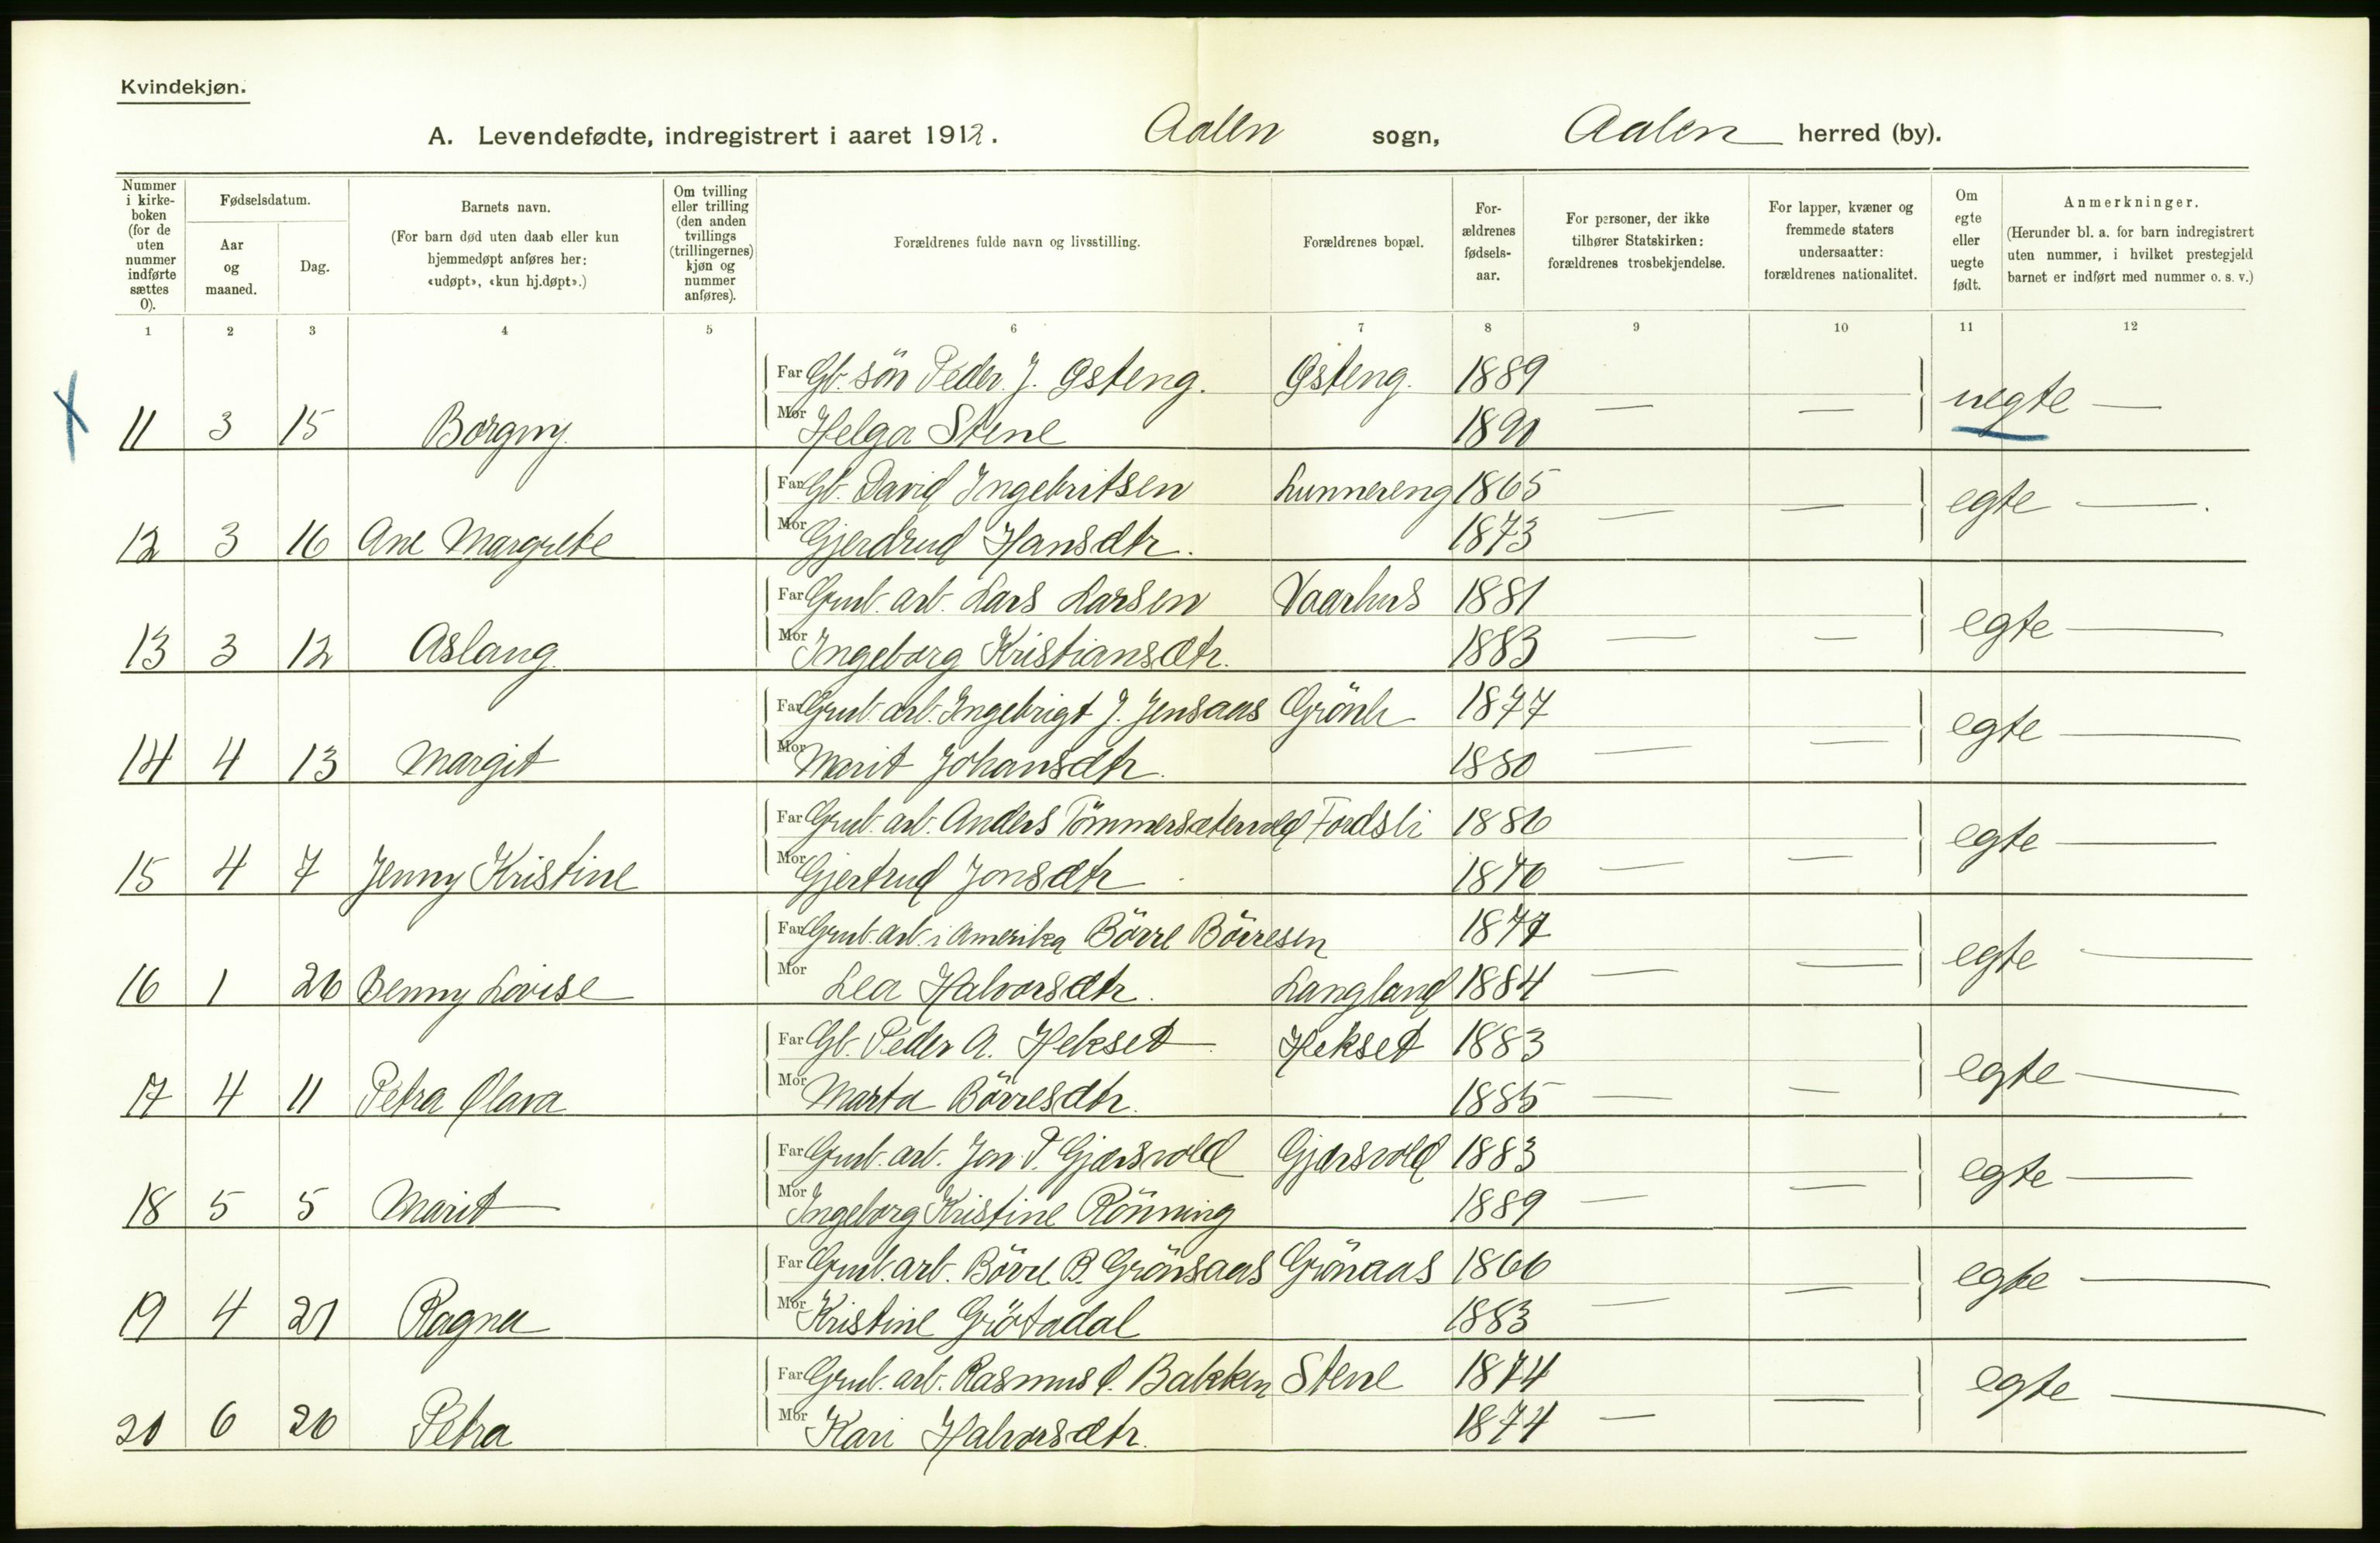 Kvindekjøn.
A. Levendefødte, indregistrert i aaret 1912. Aalen sogn, Aalen herred (by).
Nummer i kirkeboken (for de uten nummer indførte sættes 0).
Fødselsdatum.
Aar og maaned.
Dag.
Barnets navn.
(For barn død uten daab eller kun hjemmedøpt anføres her: «udøpt», «kun hj.døpt».)
Om tvilling eller trilling (den anden tvillings (trillingernes) kjøn og nummer anføres).
Forældrenes fulde navn og livsstilling.
Forældrenes bopæl.
Forældrenes fødselsaar.
For personer, der ikke tilhører Statskirken: forældrenes trosbekjendelse.
For lapper, kvæner og fremmede staters undersaatter: forældrenes nationalitet.
Om egte eller uegte født.
Anmerkninger.
(Herunder bl. a. for barn indregistrert uten nummer, i hvilket prestegjeld barnet er indført med nummer o. s. v.)
1 2 3 4 5 6 7 8 9 10 11 12
Far Gb. sön Peder J. Østeng. Østeng. 1889
11 3 15 Borgny Mor Helga Stene 1890 — — uegte —
Far Gb. David Ingebritsen Lunnereng 1865
12 3 16 Ane Margrete Mor Gjerdrud Hansdtr. 1873 — — egte —
Far Grub. arb. Lars Larsen Vaarhus 1881
13 3 12 Aslaug Mor Ingeborg Kristiansdtr. 1883 — — egte —
Far Grub. arb. Ingebrigt J. Jensaas 1877
14 4 13 Margit Mor Marit Johansdtr. 1880 — — egte —
Far Grub. arb. Anders Tömmersætervold Fordsli 1886
15 4 7 Jenny Kristine Mor Gjertrud Jonsdtr 1876 — — egte —
Far Grub. arb. i Amerika Börre Börresen 1877
16 1 26 Benny Lovise Mor Lea Halvorsdtr. Langland 1884 — — egte —
Far Gb. Peder A. Hekset Hekset 1883
17 4 11 Petra Olava Mor Marta Börresdtr. 1885 — — egte —
Far Grub. arb. Jon P. Gjærsvold Gjærsvold 1883
18 5 5 Marit Mor Ingeborg Kristine Rönning 1889 — — egte —
Far Grub. arb. Börre B. Grönsaas Grönaas 1866
19 4 21 Ragna Mor Kristine Grötadal 1883 — — egte —
Far Grub. arb. Rasmus O. Bakken Stene 1874
20 6 26 Petra Mor Kari Halvorsdtr. 1874 — — egte —